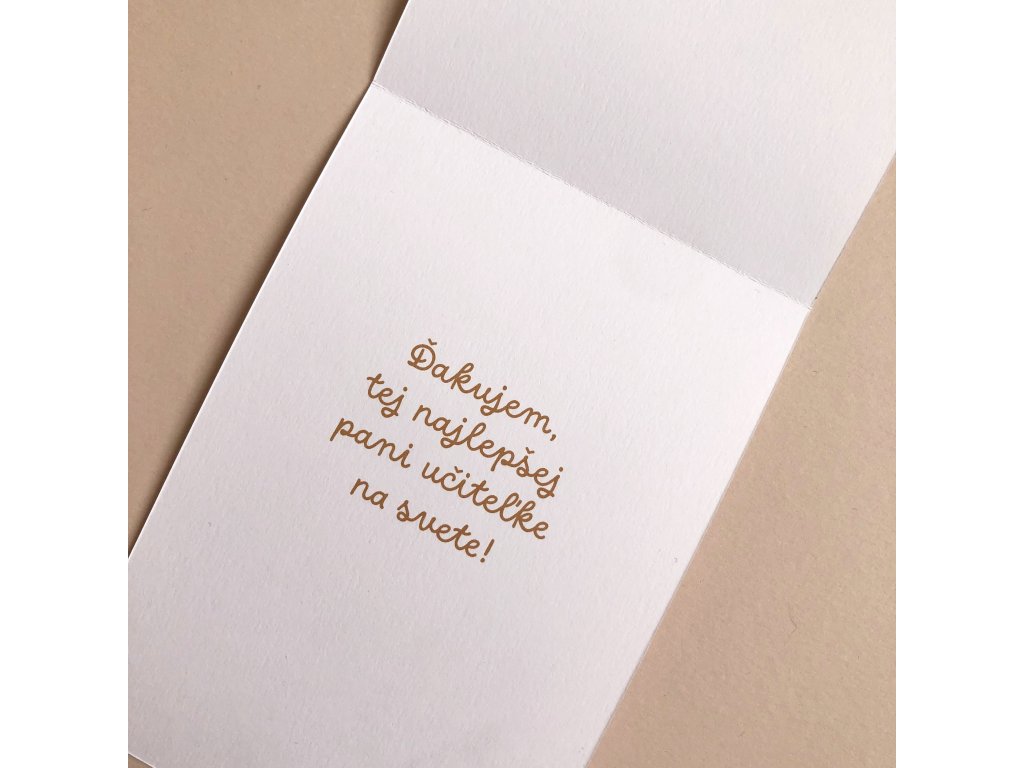 Ďakujem,
tej najlepšej
pani učiteľke
na svete!